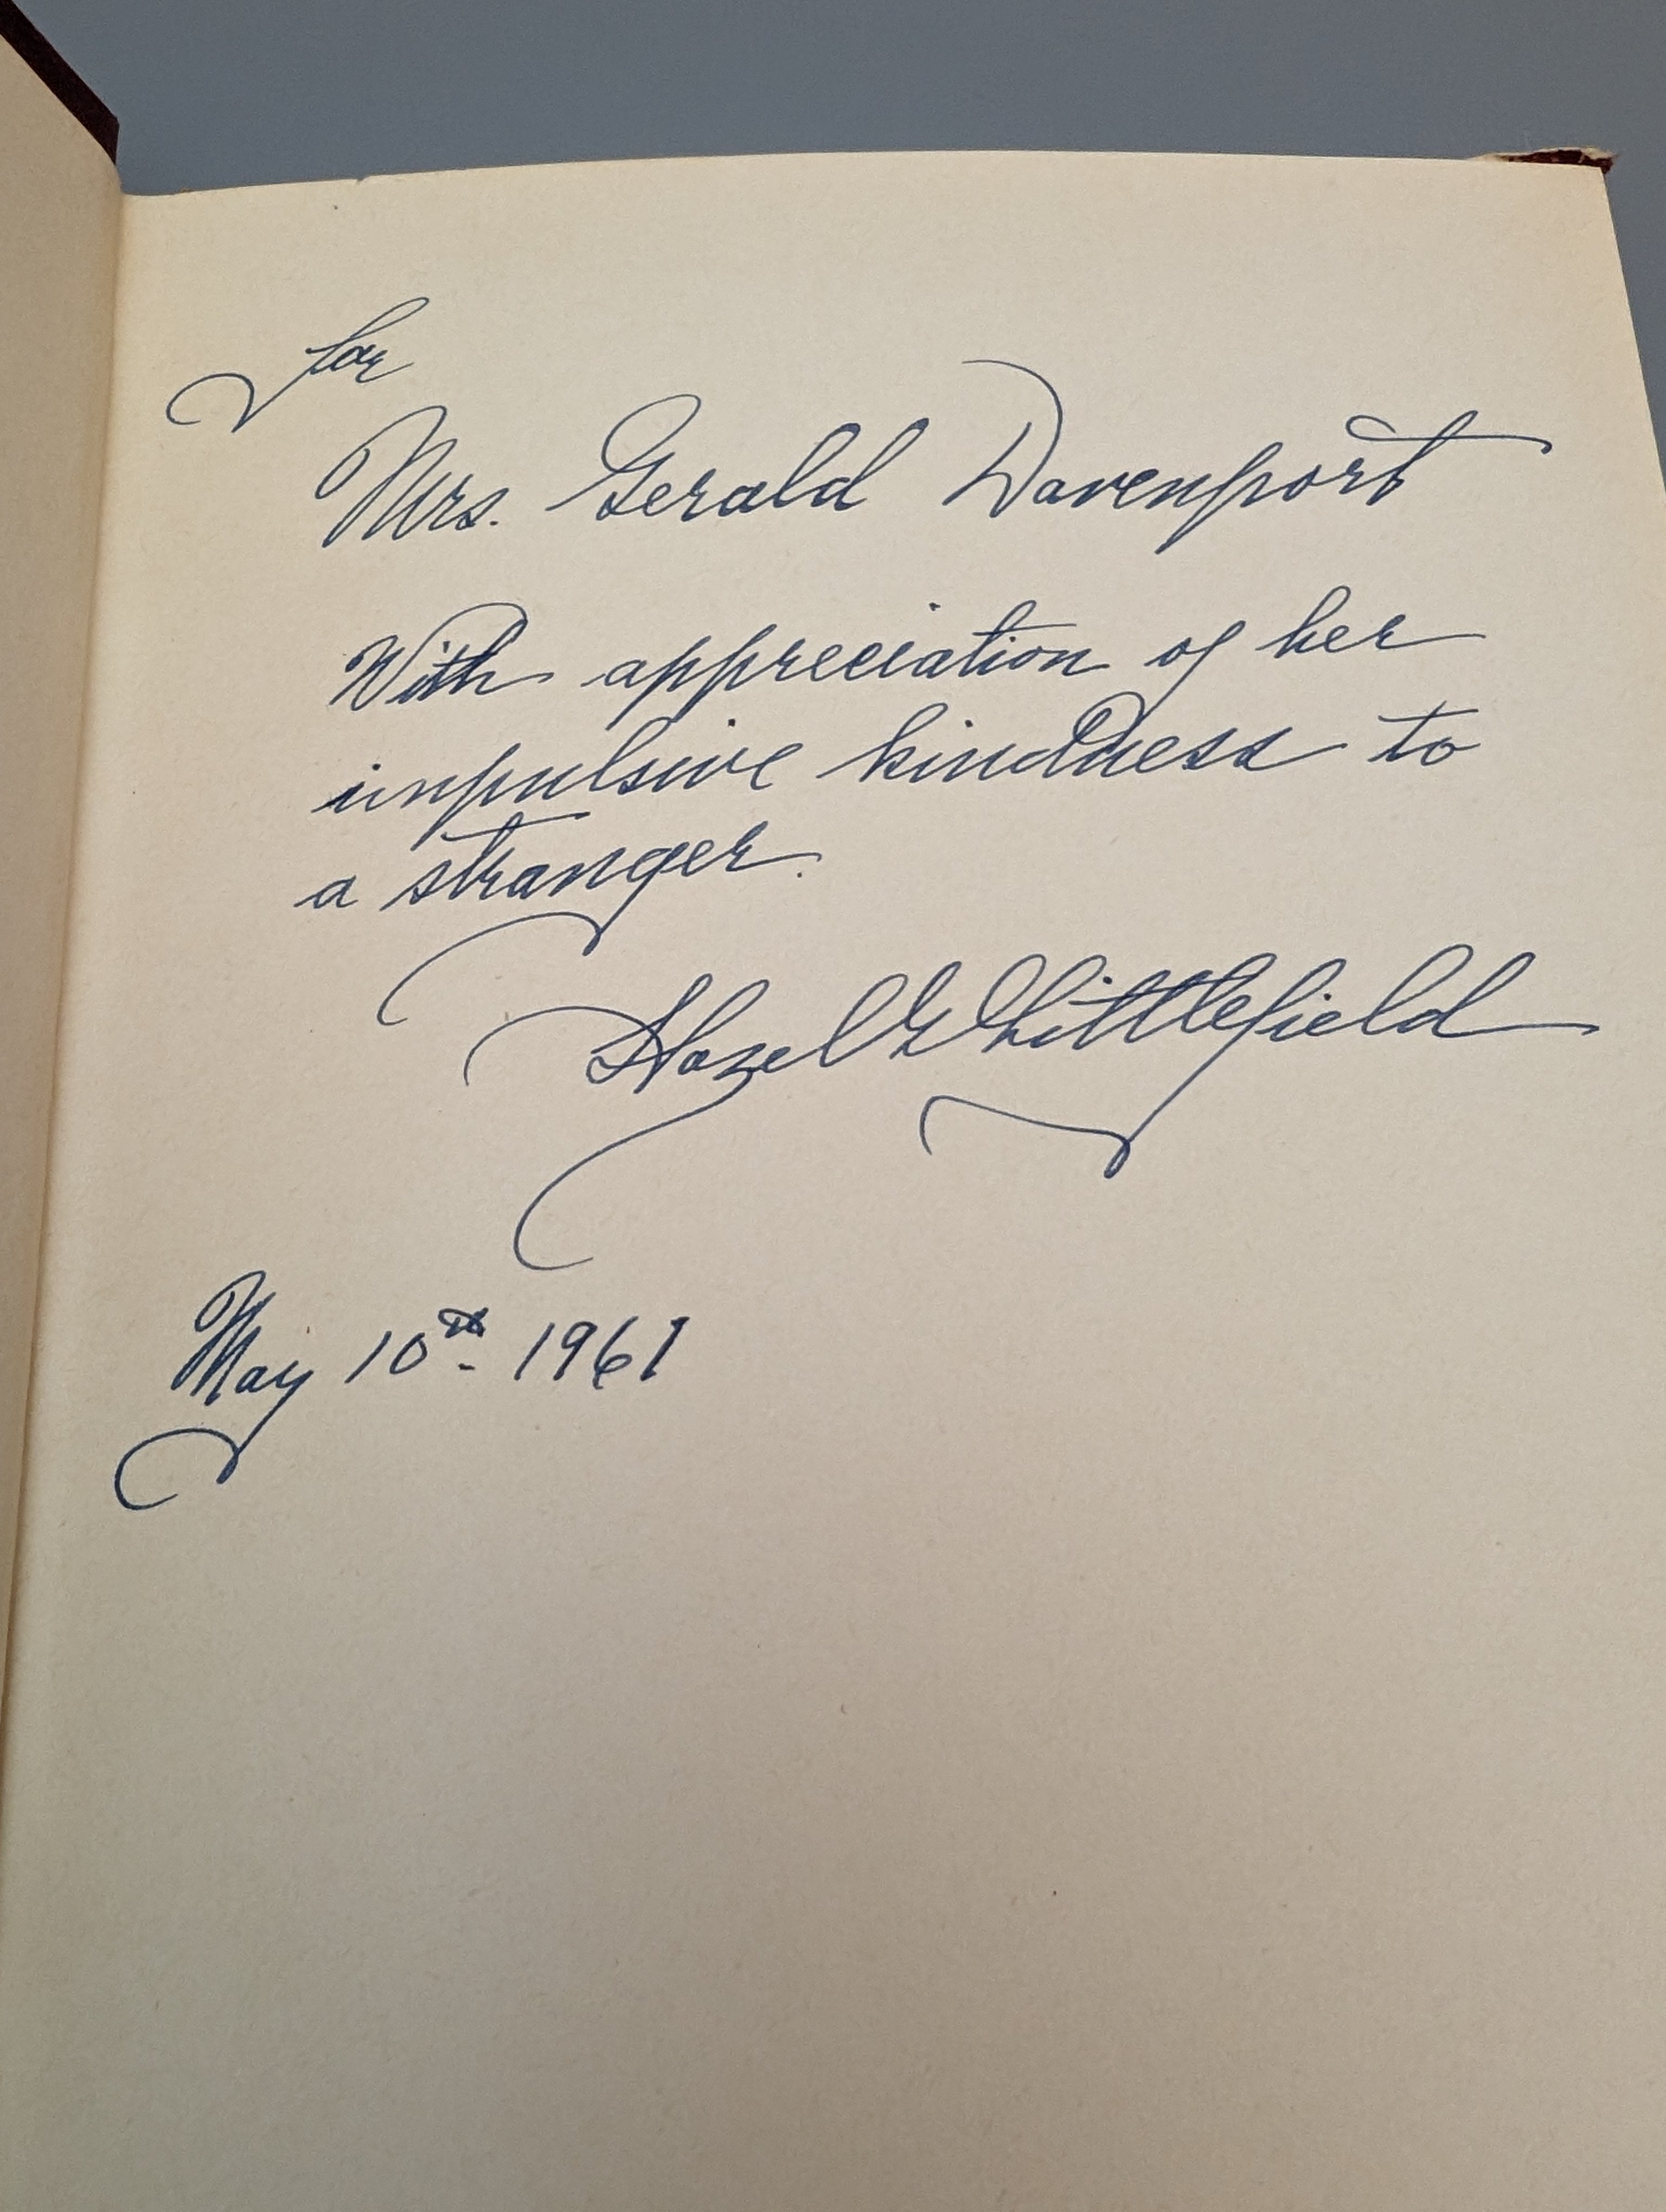 for
Mrs. Gerald Davenport
With appreciation of her
impulsive kindness to
a stranger.
Hazel G Littlefield
May 10th 1961